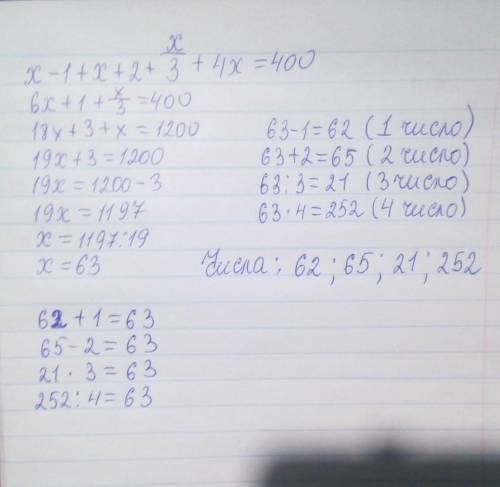 x - 1 + x + 2 + x/3 + 4x = 400
6x + 1 + x/3 = 400
18x + 3 + x = 1200
19x + 3 = 1200
19x = 1200 - 3
19x = 1197
x = 1197 : 19
x = 63
63 - 1 = 62 (1 число)
63 + 2 = 65 (2 число)
63 : 3 = 21 (3 число)
63 · 4 = 252 (4 число)
Числа : 62 ; 65 ; 21 ; 252
62 + 1 = 63
65 - 2 = 63
21 · 3 = 63
252 : 4 = 63